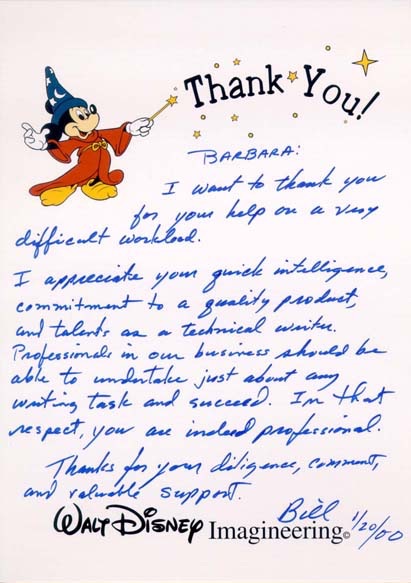 Thank You!
BARBARA:
I want to thank you
for your help on a very
difficult workload.
I appreciate your quick intelligence,
commitment to a quality product,
and talents as a technical writer.
Professionals in our business should be
able to undertake just about any
writing task and succeed. In that
respect, you are indeed professional.
Thanks for your diligence, comment,
and valuable support.
Bill 1/20/00
WALT DISNEY Imagineering©